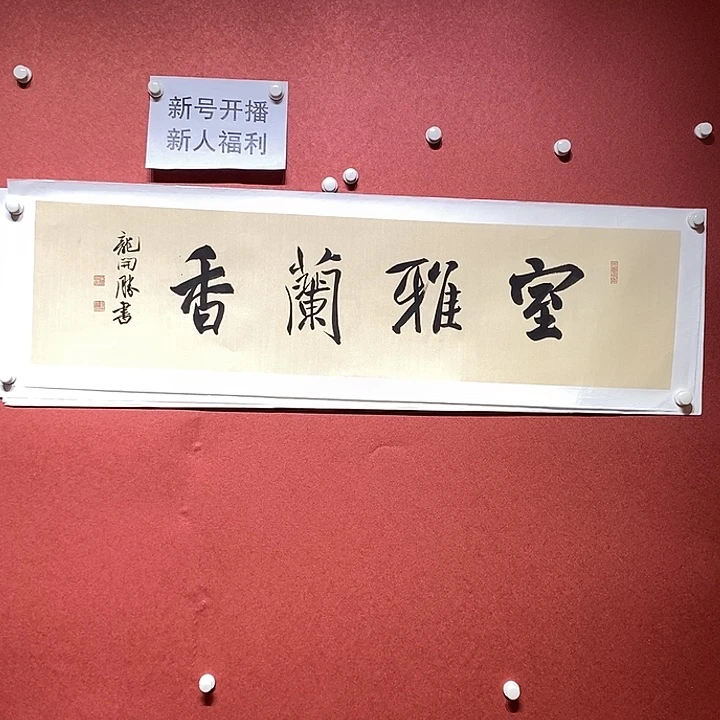 新号开播
新人福利
室雅蘭香
龍開勝書